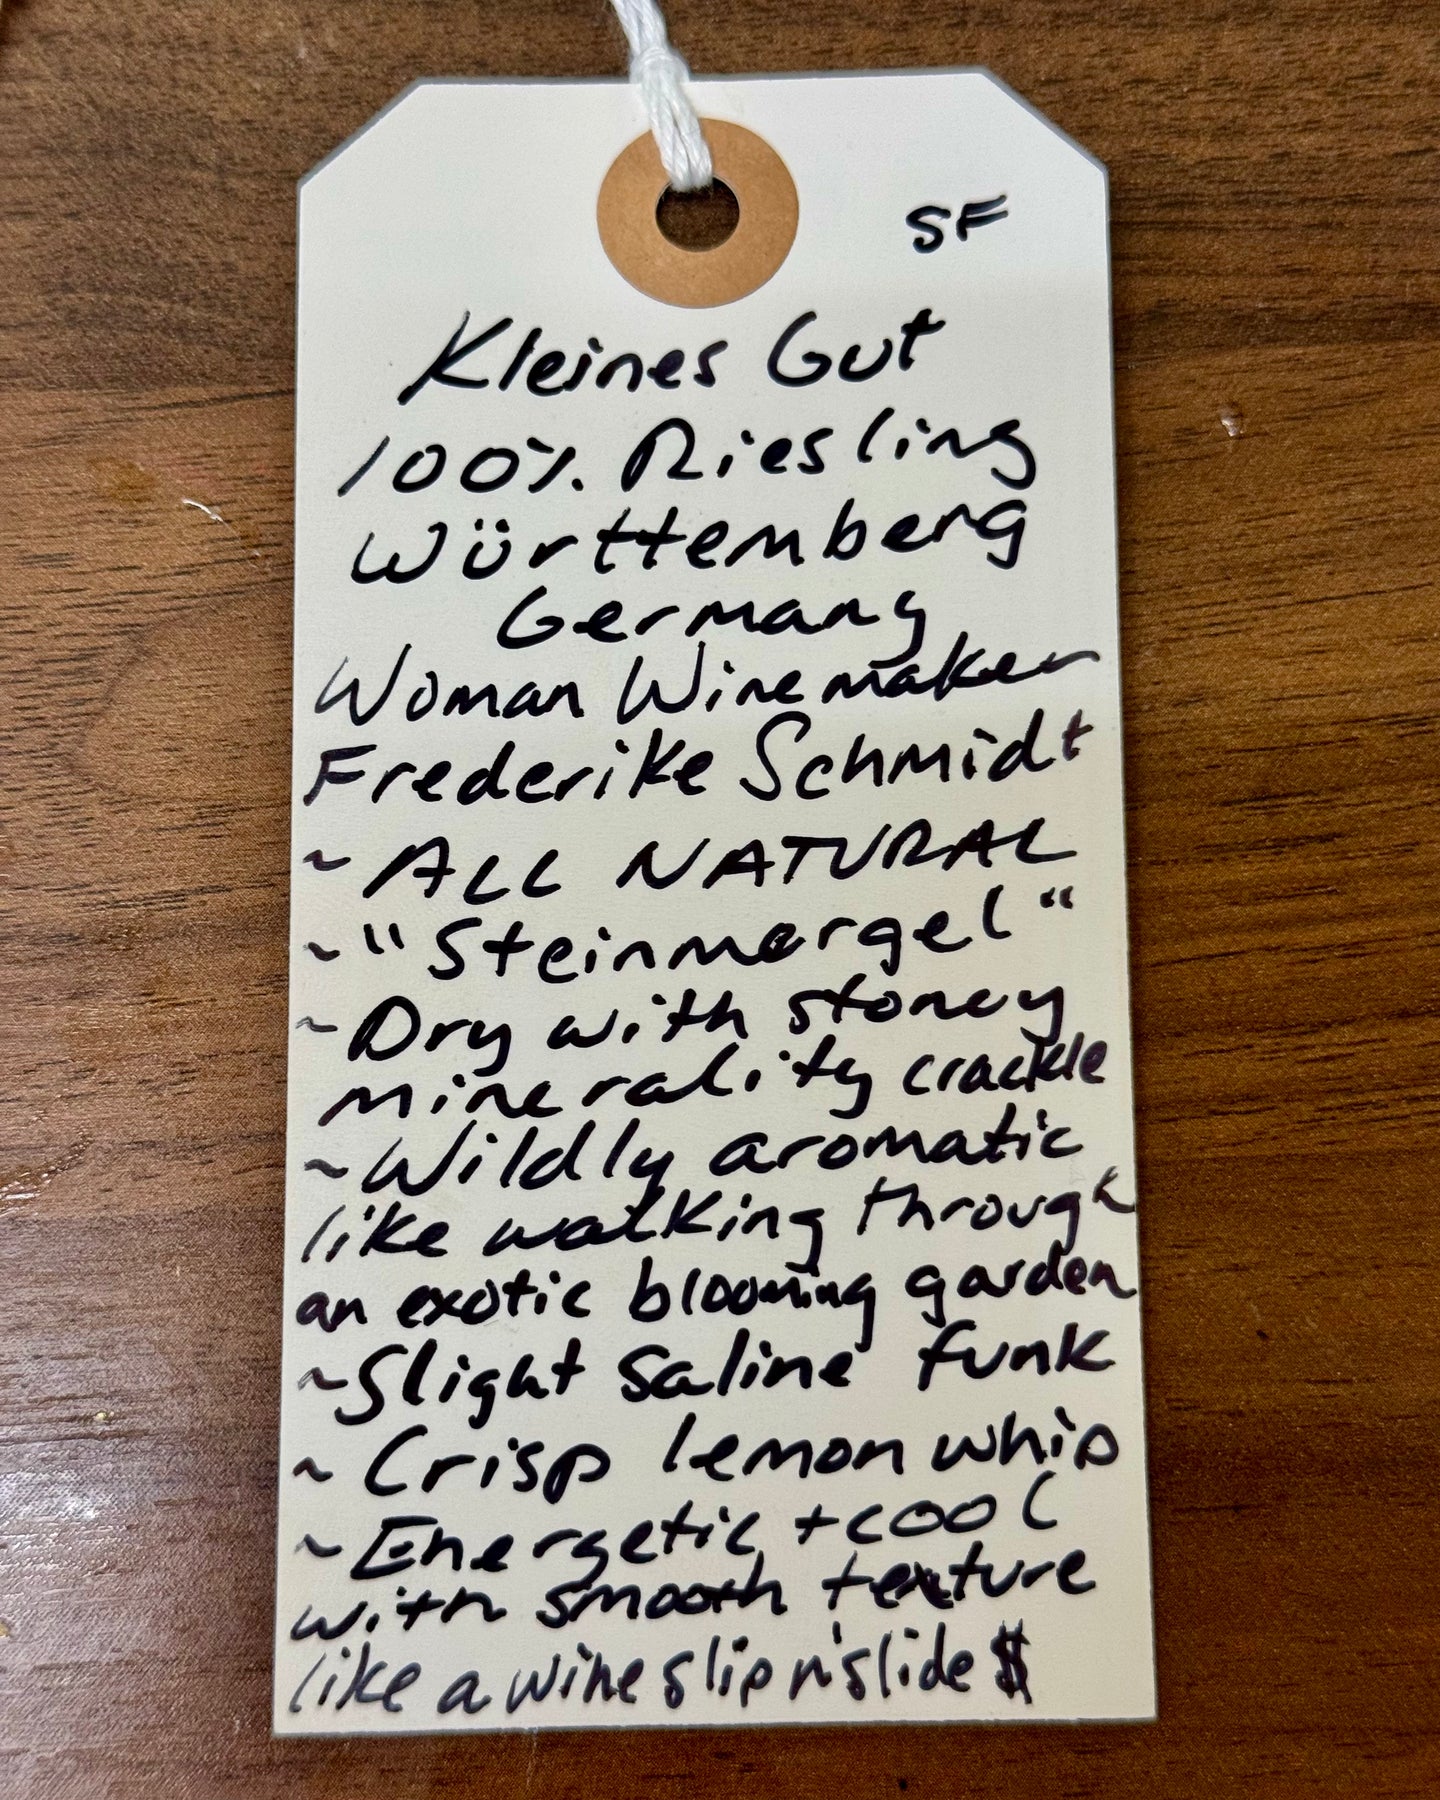 SF
Kleines Gut
100% Riesling
Württemberg
Germany
Woman Winemaker
Frederike Schmidt
~ ALL NATURAL
~ "Steinmergel"
~ Dry with stoney
minerality crackle
~ Wildly aromatic
like walking through
an exotic blooming garden
~ Slight saline funk
~ Crisp lemon whip
~ Energetic + cool
with smooth texture
like a wine slip n' slide $